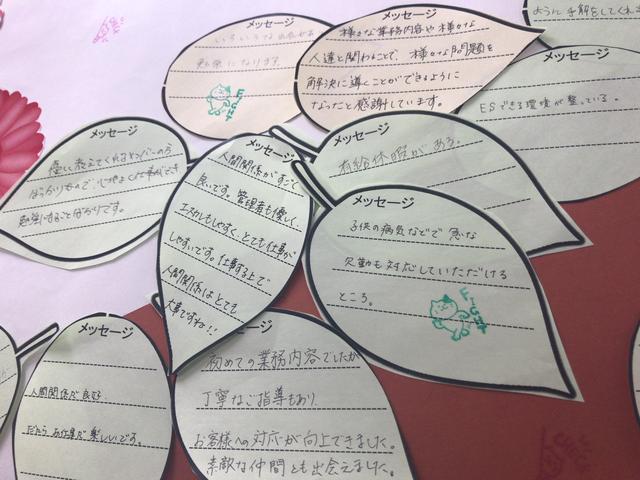 メッセージ
いろいろな
勉強になります
FIGHT
メッセージ
様々な業務内容や様々な
人達と関わることで、様々な問題を
解決に導くことができるように
なったと感謝しています。
ように手解をしてくれ
ESできる環境が整っている。
メッセージ
優しく教えてくれるメンバーの方
ばかりなので、心地よく仕事ができ
勉強になることばかりです。
メッセージ
人間関係がすごく
良いです。管理者も優しく、
エスカもしやすく、とても仕事が
しやすいです。仕事する上で
人間関係はとても
大事ですね!!
メッセージ
有給休暇がある。
メッセージ
子供の病気などで急な
欠勤も対応していただける
ところ。
FIGHT
メッセージ
人間関係が良好
だからお仕事が楽しいです。
メッセージ
初めての業務内容でしたが
丁寧なご指導もあり
お客様への対応が向上できました。
素敵な仲間とも出会えました。